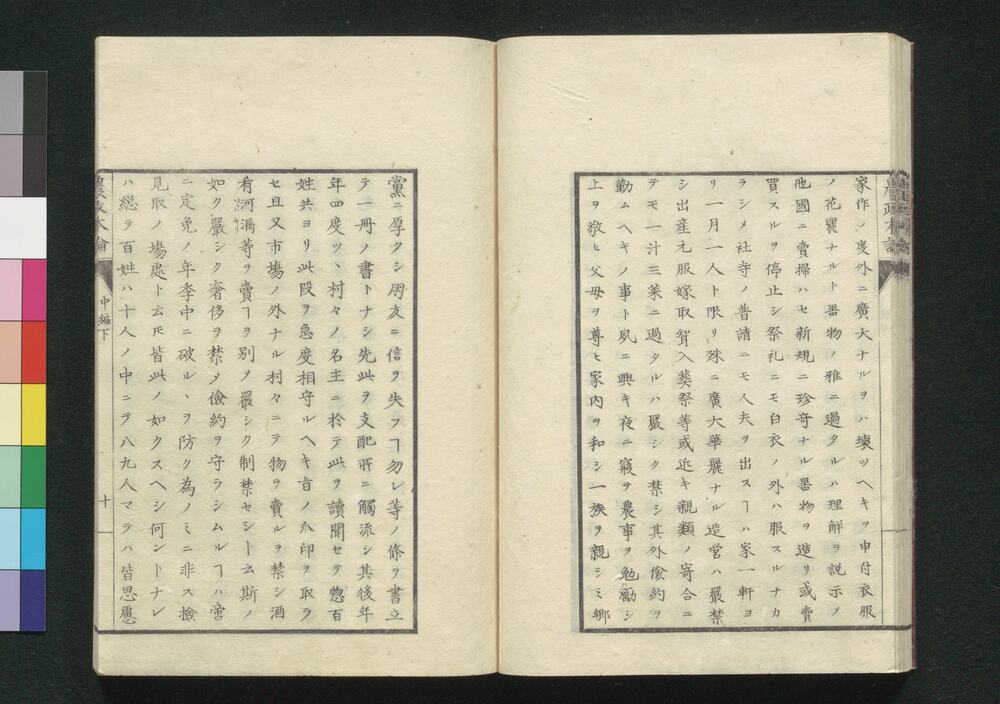 家作ノ度外ニ廣大ナルヲハ壊ツヘキヲ申付衣服
ノ花麗ナルト器物ノ雅ニ過タルハ理解ヲ説示ノ
他國ニ賣掃ハセ新規ニ珍奇ナル器物ヲ造リ或賣
買スルヲ停止シ祭礼ニモ白衣ノ外ハ服スルナカ
ラシメ社寺ノ普請ニモ人夫ヲ出スヿハ家一軒ヨ
リ一月一人ト限リ殊ニ廣大華麗ナル造営ハ嚴禁
シ出産元服嫁取聟入葬祭等或近キ親類ノ寄合ニ
テモ一汁三菜ニ過タルハ嚴シク禁シ其外儉約ヲ
勤ムヘキノ事ト夙ニ興キ夜ニ寝テ農事ヲ勉勵シ
上ヲ敬ヒ父母ヲ尊ヒ家内ヲ和シ一族ヲ親シミ郷
黨ニ厚クシ朋友ニ信ヲ失フヿ勿レ等ノ條ヲ書立
テ一冊ノ書トナシ先此ヲ支配所ニ觸流シ其後年
年四度ツヽ村々ノ名主ニ於テ此ヲ讀聞セテ惣百
姓共ヨリ此段ヲ急度相守ルヘキ旨ノ爪印ヲ取ラ
セ且又市場ノ外ナル村々ニテ物ヲ賣ルヲ禁シ酒
肴河漏等ヲ賣ヿヲ別ヲ嚴シク制禁セシト云斯ノ
如ク嚴シク奢侈ヲ禁メ儉約ヲ守ラシムルヿハ啻
ニ定免ノ年季中ニ破ルヽヲ防ク為ノミニ非ス撿
見取ノ場處ト云𪜈皆此ノ如クスヘシ何ントナレ
ハ総テ百姓ハ十人ノ中ニテ八九人マテハ皆思慮
農政本論
中編下
十